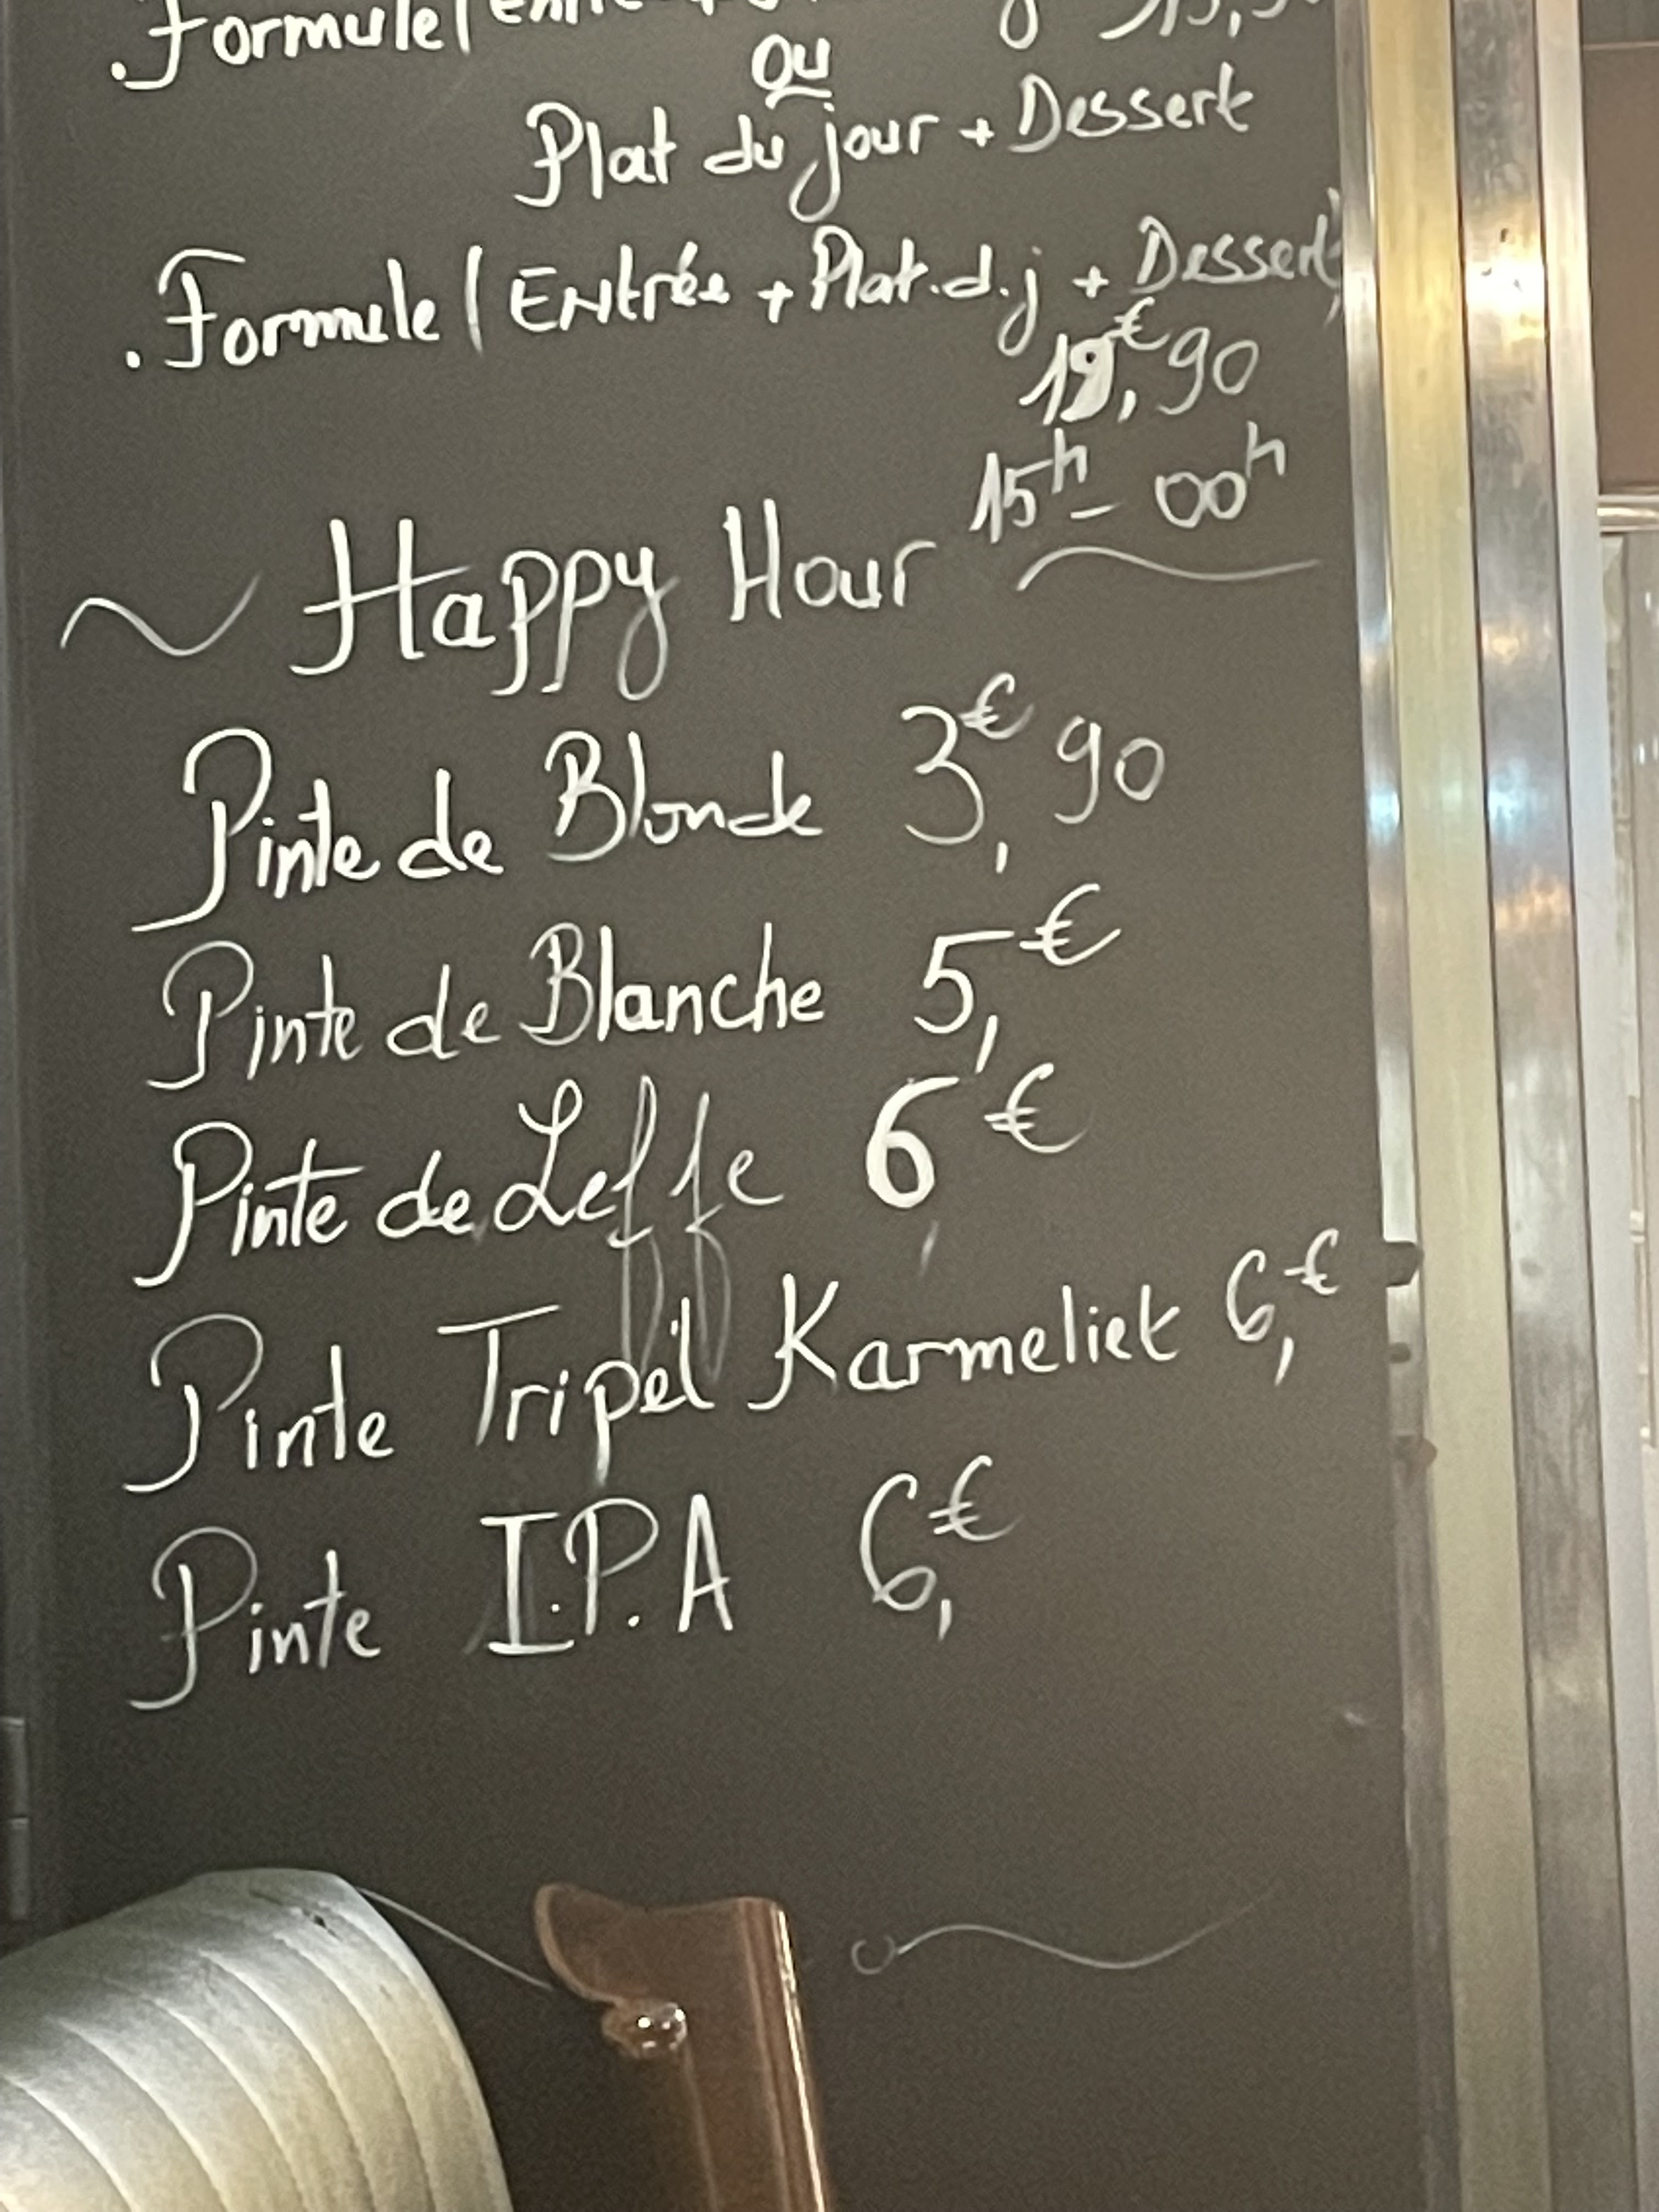 . Formule (
ou
Plat du jour + Dessert
. Formule ( Entrée + Plat.d.j + Dessert)
19,€90
15h - 00h
~ Happy Hour ~
Pinte de Blonde 3,€90
Pinte de Blanche 5,€
Pinte de Leffe 6,€
Pinte Tripel Karmeliet 6,€
Pinte I.P.A 6,€